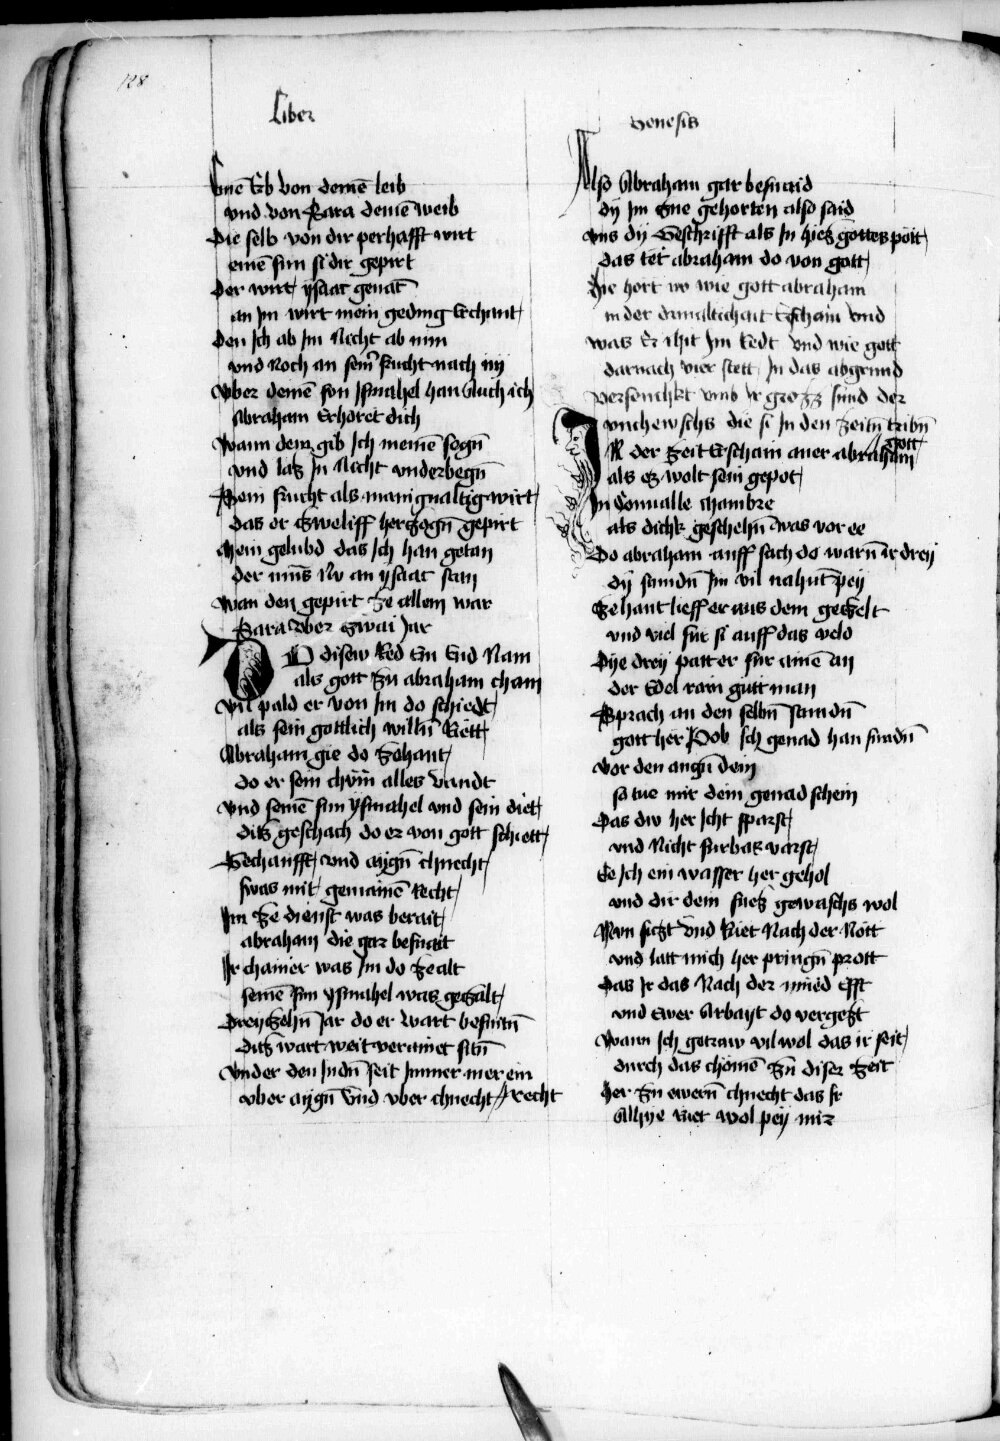 128
Liber
Genesis
Eine Erb von deinē leib
vnd von Sara deinē weib
Die selb von dir perhafft wirt
einē sun si dir gepirt
Der wirt ysaac genāt
an Im wirt mein geding Erchant
Den Ich ab Im Nicht ab nim
vnd Noch an seinr frucht nach im
Vber deinē son Ismahel han Auch ich
Abraham Erhoret dich
Wann dem gib Ich meinen segn̄
vnd las In Nicht vnderbegn̄
Sein frucht als manigualtig wirt
das er Zweliff herczogn̄ gepirt
Mein gelubd das Ich han getan
der mus Nv an ysaac stan
Wan den gepirt Ze allem war
Sara vber zwai Jar
DO disew Red Ein End Nam
als gott Zu abraham cham
Vil pald er von Im do schiedt
als sein gottlich willn̄ Riett
Abraham gie do Zehant
do er sein chind alles vandt
Vnd seinē sun ysmahel vnd sein diet
ditz geschach do er von gott schiett
Gechaufft vnd aygn̄ chnecht
swas mit gemainē Recht
Im Ze dienst was berait
abraham die gar besnait
Ir chainer was Im do Ze alt
seinē sun ysmahel was gezalt
Dreyzehn̄ Jar do er wart besnitn̄
ditz wart weit verainet sitn̄
Vnder den Judn̄ seit Immer mer ein
vber aygn̄ vnd vber chnecht recht
Also Abraham gar besnaid
dy Im Zue gehorten also said
Vns dy Geschrifft als In hiez gottes pott
das tet abraham do von gott
Hie hort wo wie gott abraham
in der driualtichait Erschain vnd
was Er mit Im Redt vnd wie gott
darnach vier stett In das abgrund
versenchkt vmb Ir grozz sund der
vnchewschs die si In den Zeitn̄ tribn̄
IN der Zeit Erschain auer abraham gott
als ez wolt sein gepot
In Conualle mambre
als dickh geschehn̄ was vor ee
Do abraham auff sach do warn̄ ir drey
dy stundn̄ Im vil nahnt pey
Zehant lieff er aus dem gezelt
vnd viel fur si auff das veld
Dye drey patt er fur ainē an
der Edel rain gutt man
Sprach an den selbn̄ stundn̄
gott her Hob Ich genad han fundn̄
Vor den augn̄ dein
so tue mir dein genad schein
Das dw her Icht sparst
vnd Nicht furbas varst
Ee Ich ein wasser her gehol
vnd dir dein fuez gewaschs wol
Nvn siczt vnd Riet Nach der Nott
vnd latt mich her pringn̄ prott
Das Ir das Nach der mued esst
vnd Ewer Arbayt do vergezt
Wann Ich getraw vil wol das ir seit
durch das chömē Zu diser Zeit
Her Zu ewern̄ chnecht das Ir
Alhye riet wol pey mir